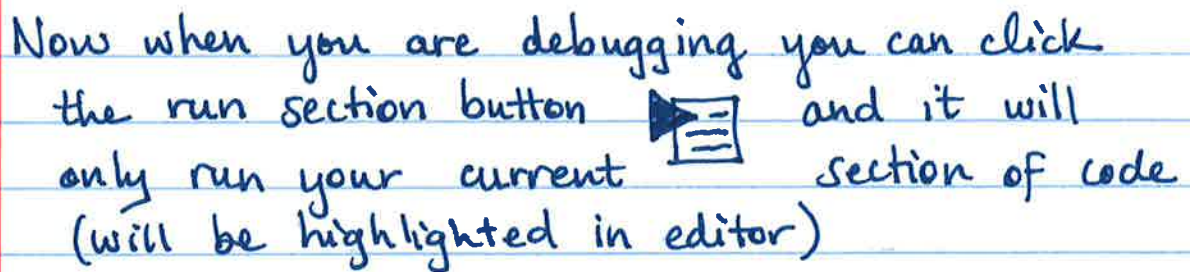 Now when you are debugging you can click
the run section button and it will
only run your current section of code
(will be highlighted in editor)